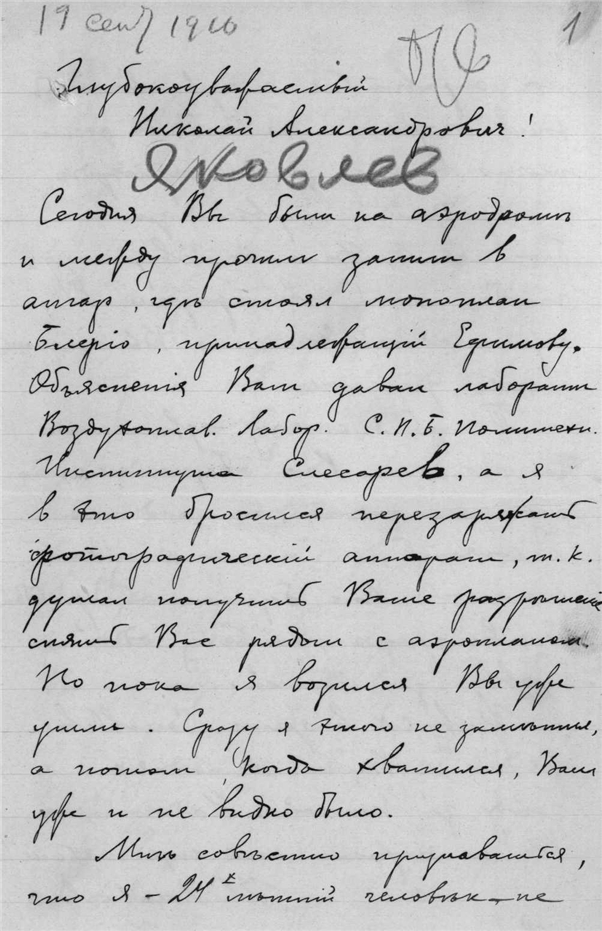 19 сент 1910
1
Глубокоуважаемый
Николай Александрович!
Яковлев
Сегодня Вы были на аэродроме
и между прочим зашли в
ангар, гдѣ стоял моноплан
Блеріо, принадлежащій Ефимову.
Объясненія Вам давал лаборант
Воздухоплав. Лабор. С.П.Б. Политехн.
Института Слесарев, а я
в это бросился перезаряжать
фотографическій аппарат, т.к.
думал получить Ваше разрѣшеніе
снять Вас рядом с аэропланом.
Но пока я возился Вы уже
ушли. Сразу я этого не замѣтил,
а потом, когда хватился, Вас
уже и не видно было.
Мнѣ совѣстно признаваться,
что я – 24х лѣтній человѣк – не